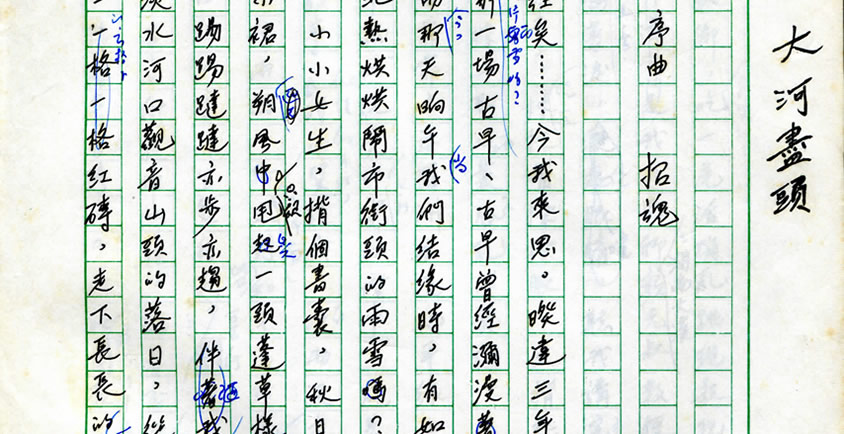 大河盡頭
序曲 招魂
矣……今我來思。暌違三年
一場古早、古早曾經瀰漫
那天晌午我們結緣時,有如
熱烘烘鬧市街頭的雨雪嗎?
小小女生,揹個書囊,秋日
裙,朔風中甩起一頭蓬草樣
踢踢躂躂亦步亦趨,伴著我
水河口觀音山頭的落日,從
一格一格紅磚,走下長長的